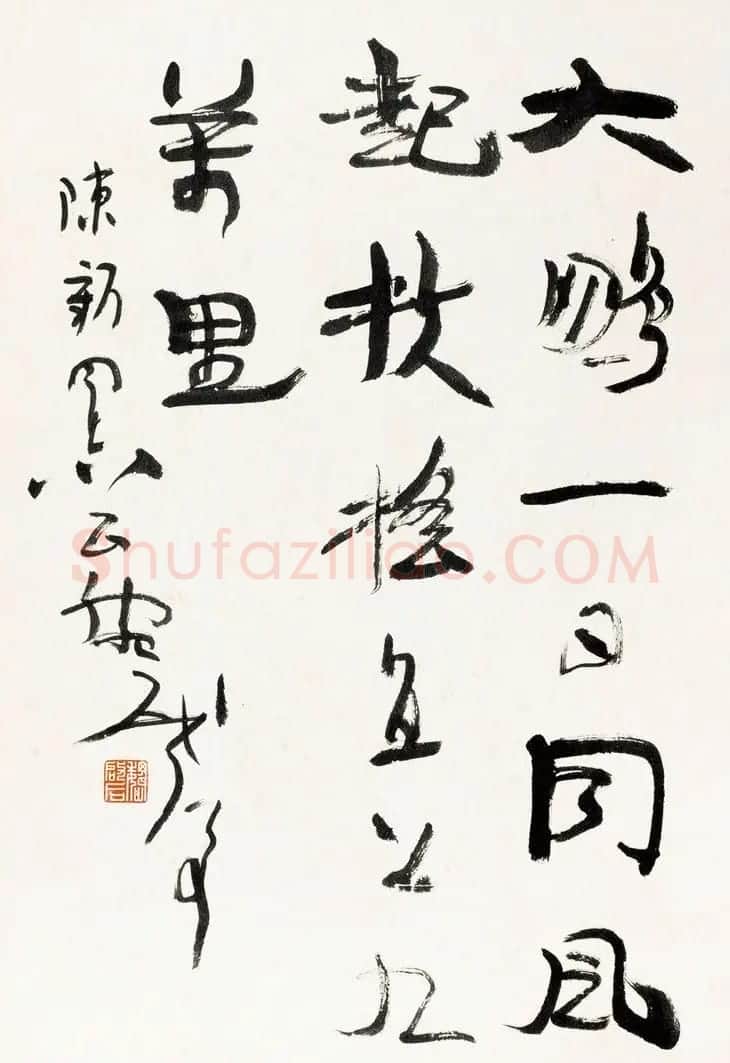 大鵬一日同風
起扶搖直上九
萬里
陳新
Shufaziliao.COM